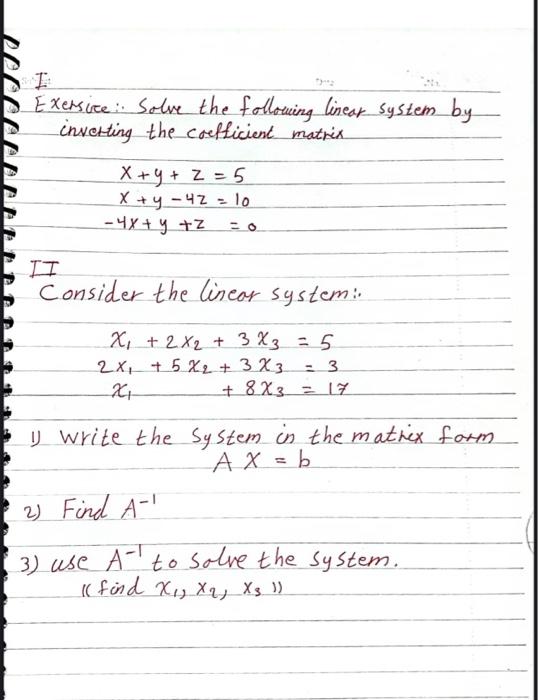 I
Exersice:. Solve the following linear system by
inverting the coefficient matrix
x + y + z = 5
x + y - 4z = 10
-4x + y + z = 0
II
Consider the linear system:.
x₁ + 2x₂ + 3x₃ = 5
2x₁ + 5x₂ + 3x₃ = 3
x₁ + 8x₃ = 17
1) write the system in the matrix form
A X = b
2) Find A⁻¹
3) use A⁻¹ to solve the system.
(( find x₁, x₂, x₃ ))